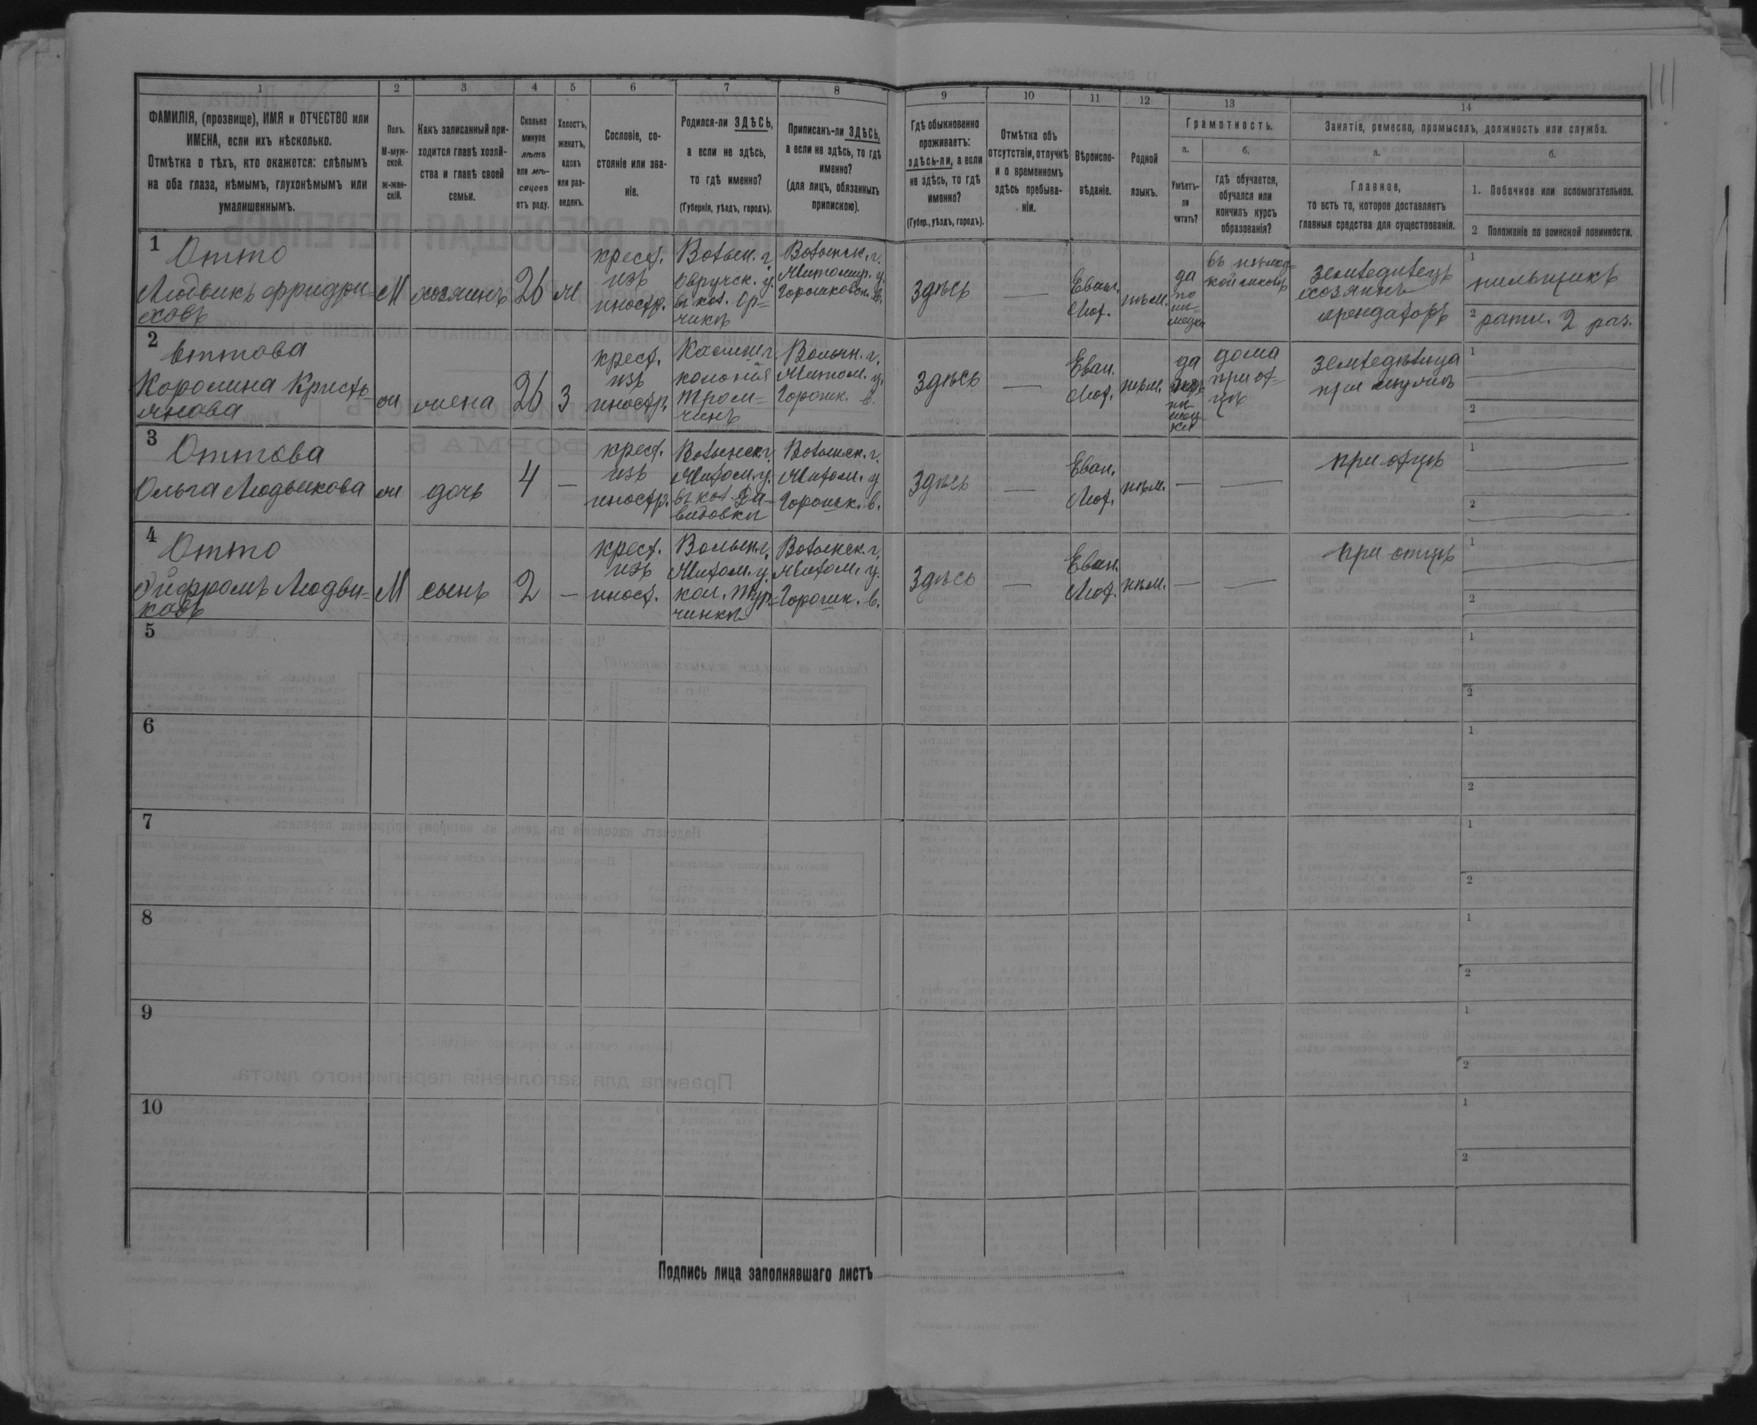 1
ФАМИЛІЯ, (прозвище), ИМЯ и ОТЧЕСТВО или
ИМЕНА, если ихъ нѣсколько.
Отмѣтка о тѣхъ, кто окажется: слѣпымъ
на оба глаза, нѣмымъ, глухонѣмымъ или
умалишеннымъ.
2
Полъ.
М-муж-
ской.
ж-жен-
скій.
3
Какъ записанный при-
ходится главѣ хозяй-
ства и главѣ своей
семьи.
4
Сколько
минуло
лѣтъ
или мѣ-
сяцевъ
отъ роду.
5
Холостъ,
женатъ,
вдовъ
или раз-
веденъ.
6
Сословіе, со-
стояніе или зва-
ніе.
7
Родился-ли ЗДѢСЬ,
а если не здѣсь,
то гдѣ именно?
(Губернія, уѣздъ, городъ).
8
Приписанъ-ли ЗДѢСЬ,
а если не здѣсь, то гдѣ
именно?
(для лицъ, обязанныхъ
припискою).
9
Гдѣ обыкновенно
проживаетъ:
здѣсь-ли, а если
не здѣсь, то гдѣ
именно?
(Губер., уѣздъ, городъ).
10
Отмѣтка объ
отсутствіи, отлучкѣ
и о временномъ
здѣсь пребыва-
ніи.
11
Вѣроиспо-
вѣданіе.
12
Родной
языкъ.
13
Грамотность.
а.
Умѣетъ-
ли
читать?
б.
гдѣ обучается,
обучался или
кончилъ курсъ
образованія?
14
Занятіе, ремесло, промыселъ, должность или служба.
а.
Главное,
то есть то, которое доставляетъ
главныя средства для существованія.
б.
1. Побочное или вспомогательное.
2 Положеніе по воинской повинности.
1
Отто
Людвикъ Фридри-
ховъ
М
хозяинъ
26
ж
крест.
изъ
иностр.
Волын. г.
Овручск. у.
въ кол.
Волынск. г.
Житомир. у.
Горошковск. в.
здѣсь
—
Еван.
Лют.
нѣм.
да
по
нѣ-
мецки
въ нѣмец-
кой школѣ
земледѣлецъ
хозяинъ
арендаторъ
1
пильщикъ
2
ратн. 2 раз.
2
Оттова
Каролина Кристь-
янова
ж
жена
26
З
крест.
изъ
иностр.
колонія
Волын. г.
Житом. у.
Горошк. в.
здѣсь
—
Еван.
Лют.
нѣм.
да
нѣ-
мец-
ки
дома
при от-
цѣ
земледѣлица
при мужѣ
1
2
3
Оттова
Ольга Людвикова
ж
дочь
4
—
крест.
изъ
иностр.
Волынск. г.
Житом. у.
въ кол. Да-
видовка
Волынск. г.
Житом. у.
Горошк. в.
здѣсь
—
Еван.
Лют.
нѣм.
—
—
при отцѣ
1
2
4
Отто
Людви-
ковъ
М
сынъ
2
—
крест.
изъ
иност.
Волын. г.
Житом. у.
кол. Тур-
чинка
Волынск. г.
Житом. у.
Горошк. в.
здѣсь
—
Еван.
Лют.
нѣм.
—
—
при отцѣ
1
2
5
1
2
6
1
2
7
1
2
8
1
2
9
1
2
10
1
2
Подпись лица заполнявшаго листъ